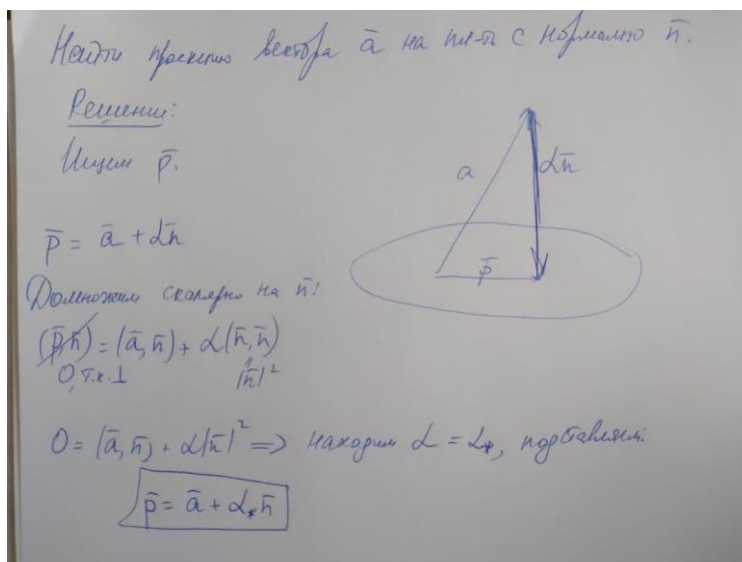 Найти проекцию вектора a̅ на пл-ть с нормалью n̅.
Решение:
Ищем p̅.
a
αn̅
p̅
p̅ = a̅ + αn̅
Домножим скалярно на n̅:
(p̅,n̅) = (a̅,n̅) + α(n̅,n̅)
0, т.к. ⊥
|n̅|²
0 = (a̅,n̅) + α|n̅|² => находим α = α*, подставляем:
p̅ = a̅ + α*n̅